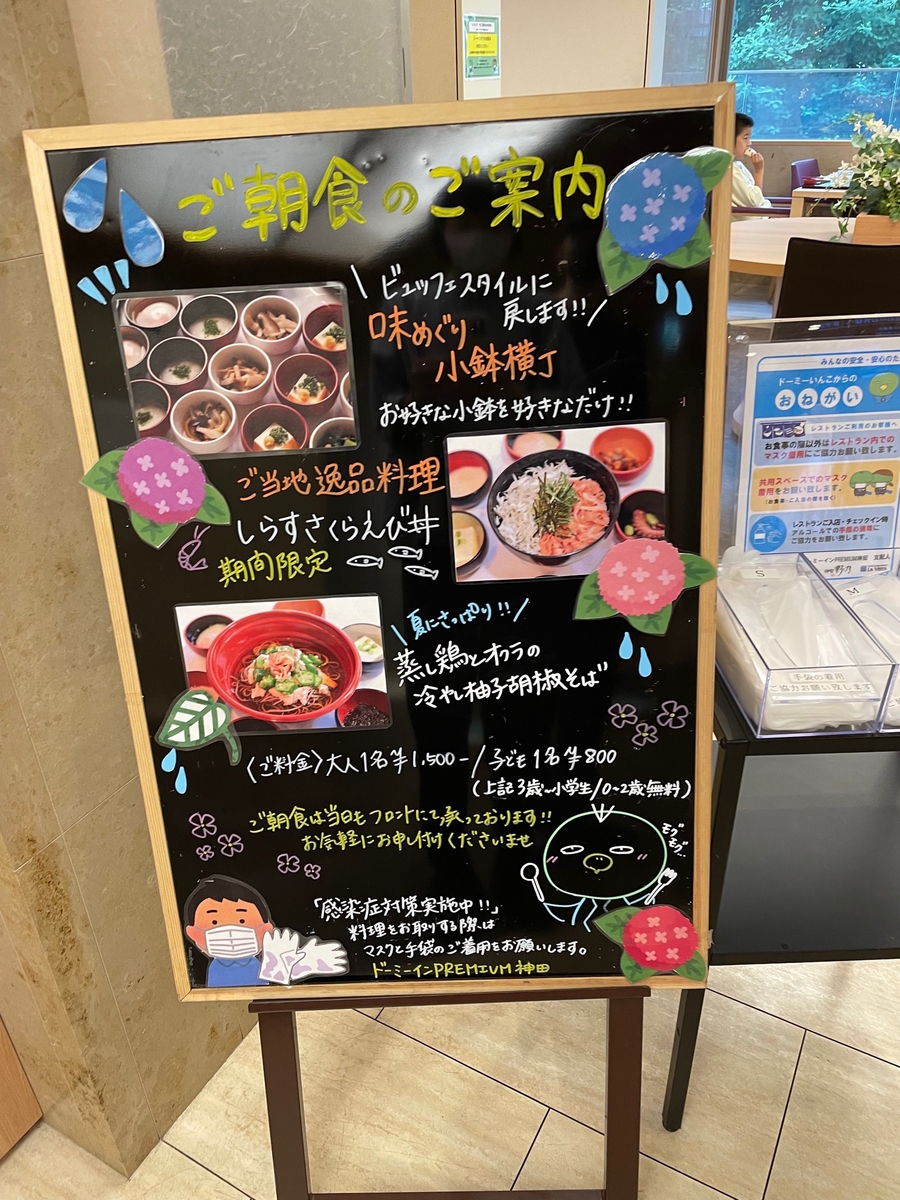 ご朝食のご案内
ビュッフェスタイルに
戻します!!
味めぐり
小鉢横丁
お好きな小鉢を好きなだけ!!
ご当地逸品料理
しらすさくらえび丼
期間限定
夏にさっぱり!!
蒸し鶏とオクラの
冷やし柚子胡椒そば
〈ご料金〉大人1名¥1,500-/子ども1名¥800
(上記3歳〜小学生/0~2歳無料)
ご朝食は当日もフロントにて承っております!!
お気軽にお申し付けくださいませ
モグ
モグ…
「感染症対策実施中!!」
料理をお取りする際は
マスクと手袋のご着用をお願いします。
ドーミーインPREMIUM神田
みんなの安全・安心のた
ドーミーいんこからの
おねがい
レストランご利用のお客様へ
お食事の際以外はレストラン内での
マスク着用にご協力お願い致します。
共用スペースでのマスク
着用をお願い致します。
レストランご入店・チェックイン時
アルコールでの手指の消毒に
ご協力をお願い致します。
ミーインPREMIUM神田 支配人
S
M
手袋の着用
ご協力お願い致します